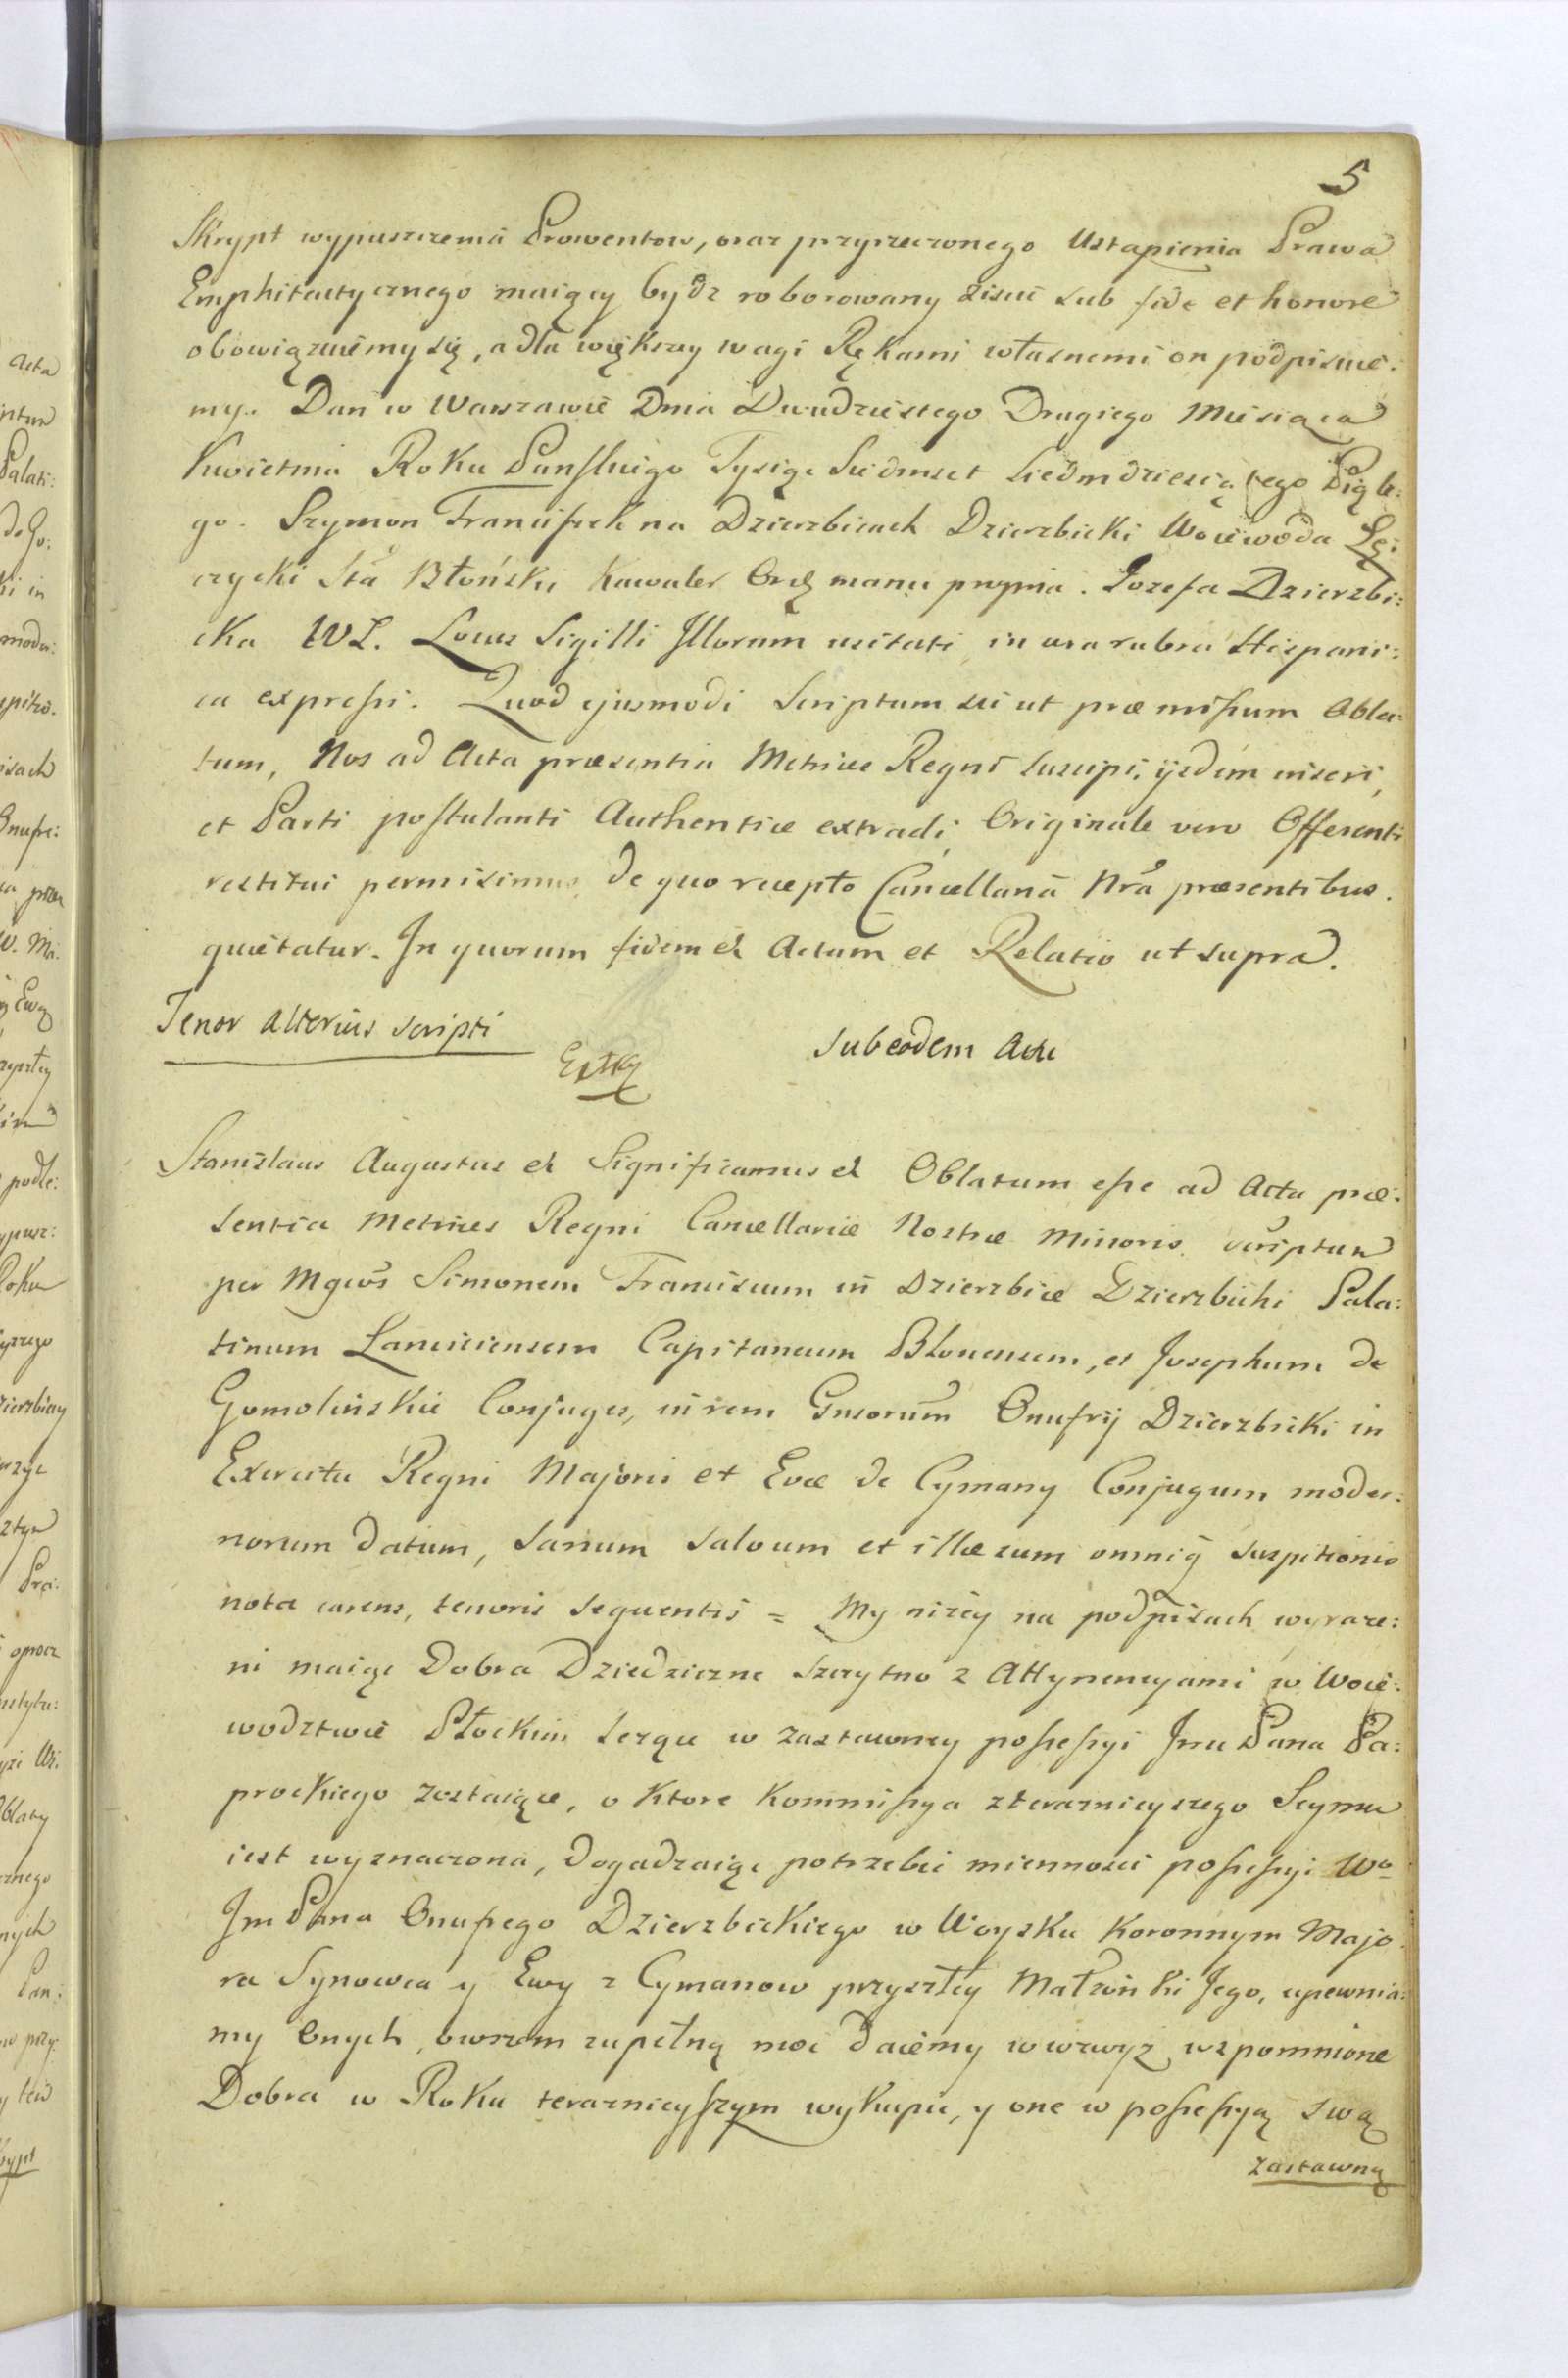 5
Skrypt wypuszczenia Prowentow, oraz przyrzeczonego Ustąpienia Prawa
Emphiteutycznego maiący bydz roborowany ziścić sub fide et honore
obowiązuiemy się, a dla większey wagi Rękami własnemi on podpisuie:
my. Dan w Warszawie Dnia Dwudziestego Drugiego Miesiąca
Kwietnia Roku Pańskiego Tysiąc Siedmset Siedmdziesiątego Piąte:
go. Szymon Franciszek na Dzierzbicach Dzierzbicki Woiewoda Łę:
czycki Sta Błoński Kawaler Ord manu propria. Jozefa Dzierzbi:
cka WŁ. Locus Sigilli Illorum usitati in cera rubra Hispani:
ca expressi. Quod ejusmodi Scriptum sic ut præmissum Obla:
tum, Nos ad Acta præsentia Metrices Regni suscipi, ijsdem inseri,
et Parti postulanti Authentice extradi, Originale vero Offerenti
restitui permisimus de quo recepto Cancellaria Nra præsentibus.
quietatur. In quorum fidem et Actum et Relatio ut supra.
Tenor alterius scripti
sub eodem Actu
Stanislaus Augustus et Significamus et Oblatum esse ad Acta præ:
sentia Metrices Regni Cancellariæ Nostræ Minoris scriptum
per Mgcos Simonem Franciscum in Dzierzbice Dzierzbicki Pala:
tinum Lanciciensem Capitaneum Blonensem, et Josepham de
Gomolińskie Conjuges, in rem Gnsorum Onufrij Dzierzbicki in
Exercitu Regni Majoris et Evæ de Cymany Conjugum moder:
norum datum, sanum salvum et illæsum omniq suspitionis
nota carens, tenoris sequentis = My niżey na podpisach wyraże:
ni maiąc Dobra Dziedziczne Szczytno z Attynencyami w Woie:
wodztwie Płockim leżące w zastawney possessyi Jmc Pana Pa:
prockiego zostaiące, o ktore Kommissya z teraznieyszego Seymu
iest wyznaczona, dogadzaiąc potrzebie mienności possessyi Wo
Jm Pana Onufrego Dzierzbickiego w Woysku Koronnym Majo:
ra Synowca y Ewy z Cymanow przyszłey Małżonki Jego, upewnia:
my Onych, owszem zupełną moc daiemy wzwyż wspomnione
Dobra w Roku teraznieyszym wykupić, y one w possessyą swą
zastawną